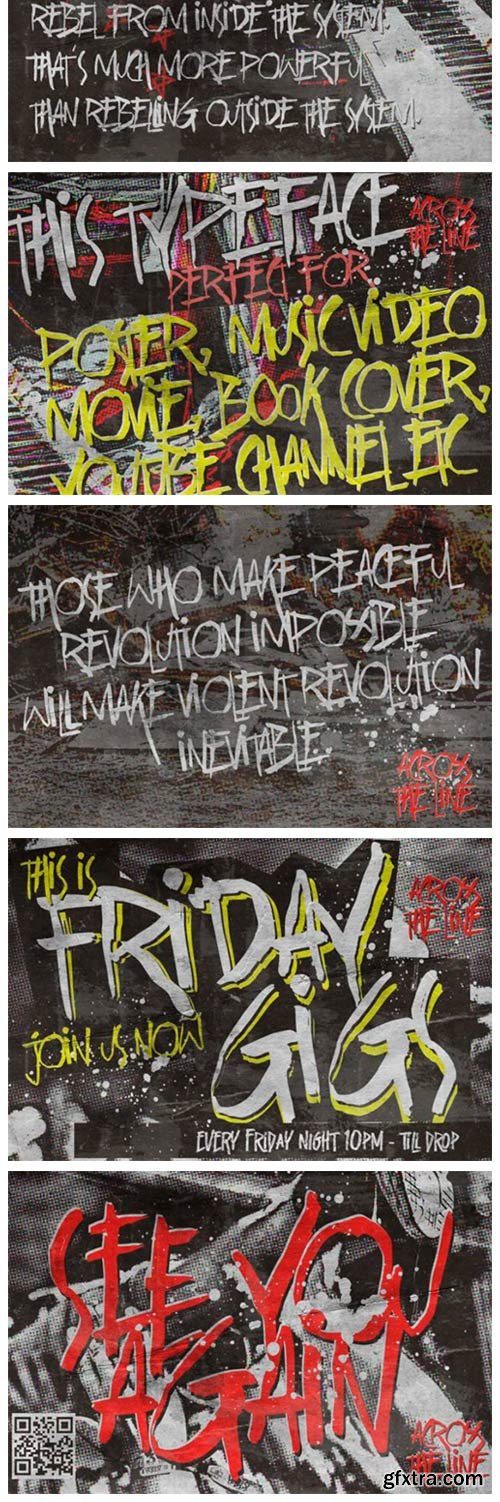 REBEL FROM INSIDE THE SYSTEM.
THAT'S MUCH MORE POWERFUL
THAN REBELING OUTSIDE THE SYSTEM.
THIS TYPEFACE
ACROSS
THE LINE
PERFECT FOR
POSTER, MUSIC VIDEO
MOVIE, BOOK COVER,
YOUTUBE CHANNEL ETC
THOSE WHO MAKE PEACEFUL
REVOLUTION IMPOSSIBLE
WILL MAKE VIOLENT REVOLUTION
INEVITABLE.
ACROSS
THE LINE
THIS IS
FRIDAY
GIGS
ACROSS
THE LINE
JOIN US NOW
EVERY FRIDAY NIGHT 10PM - TILL DROP
SEE YOU
AGAIN
ACROSS
THE LINE
gfxtra.com